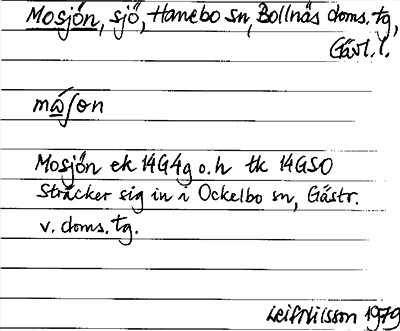 Mosjön, sjö, Hanebo sn, Bollnäs doms. tg,
Gävl. l.
måʃɵn
Mosjön ek 14G4g o. h tk 14GSO
Sträcker sig in i Ockelbo sn, Gästr.
v. doms. tg.
Leif Nilsson 1979